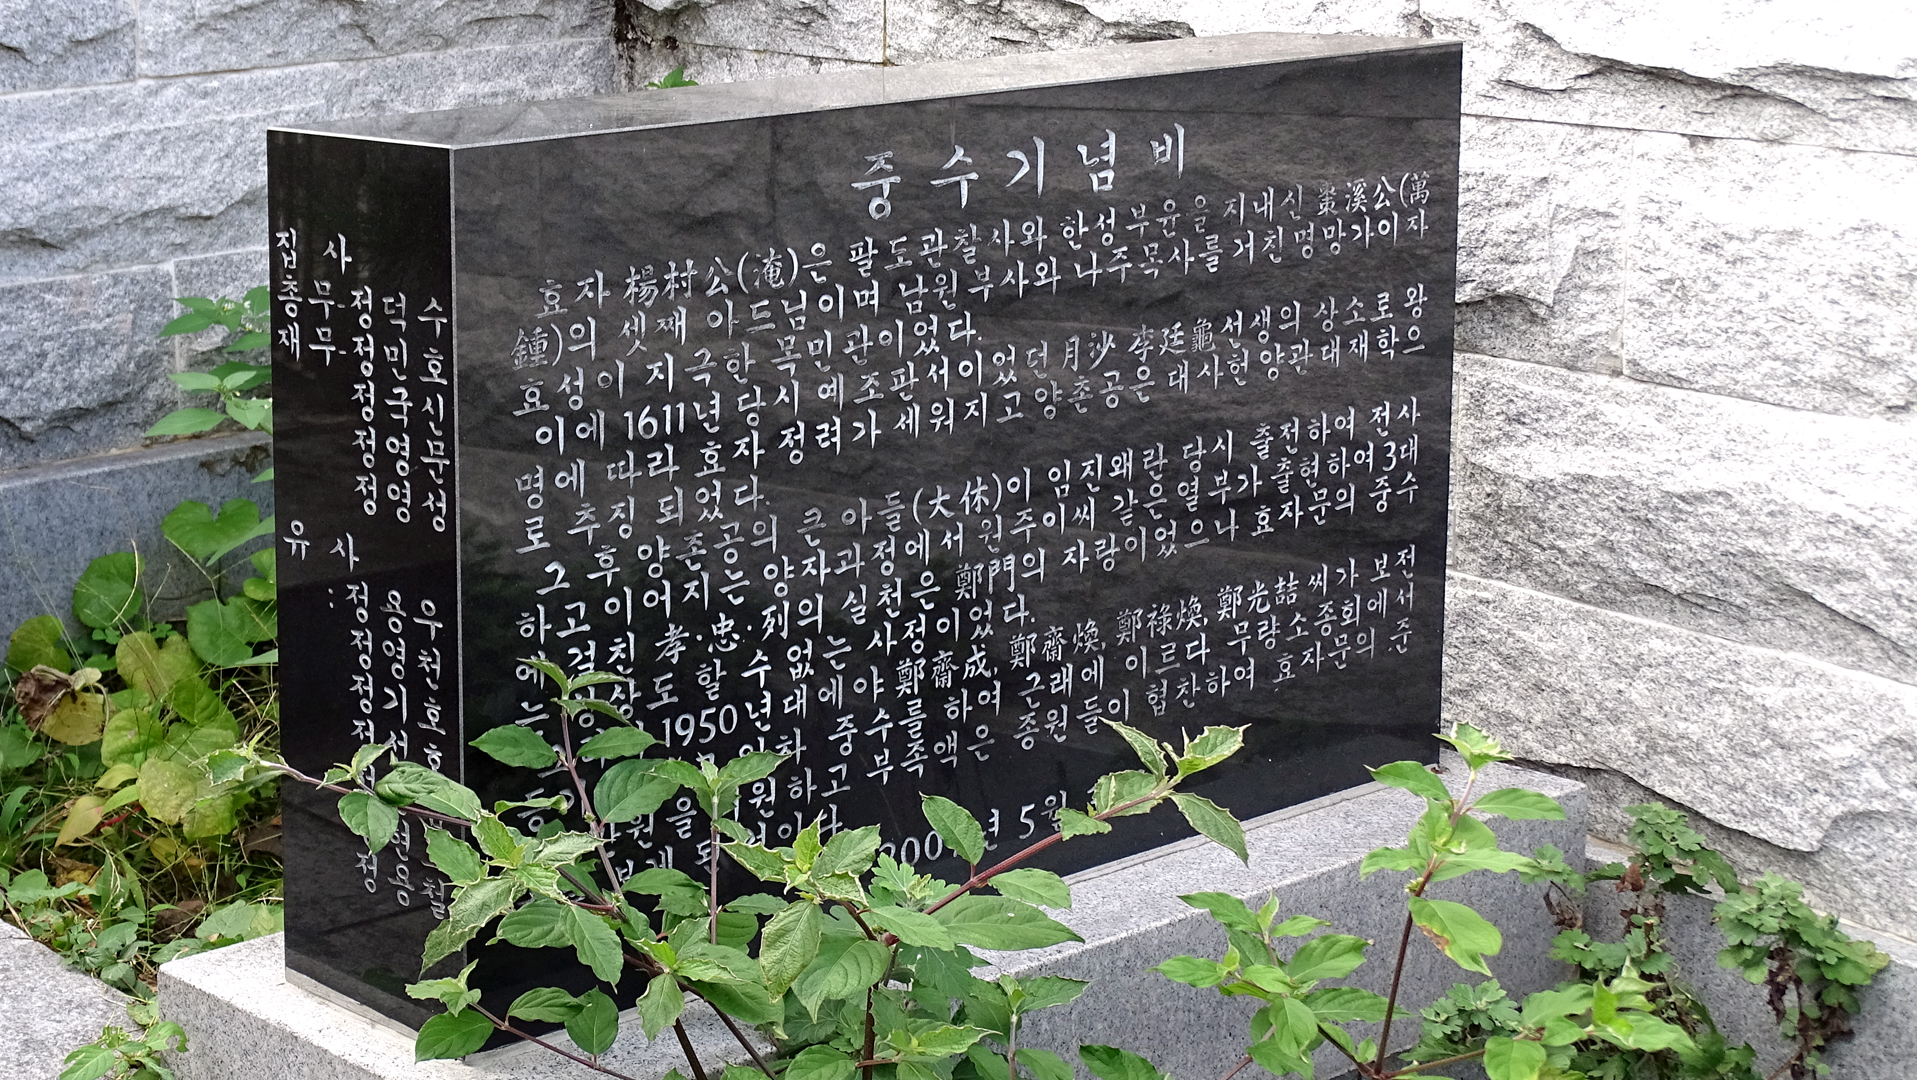 중수기념비
효자 楊村公(淹)은 팔도관찰사와 한성부윤을 지내신 溪公(萬
鍾)의 셋째 아드님이며 남원부사와 나주목사를 거친 명망가이자
효성이 지극한 목민관이었다.
이에 1611년 당시 예조판서이었던 月沙 李廷龜선생의 상소로 왕
명에 따라 효자 정려가 세워지고 양촌공은 대사헌 양관대재학으
로 추징 되었다.
그 후 양촌공의 큰 아들(大休)이 임진왜란 당시 출전하여 전사
하고 이어지는 양자과정에서 원주이씨 같은 열부가 출현하여 3대
에 걸친 孝·忠·列의 실천은 鄭門의 자랑이었으나 효자문의 중수
는 도 할 수 없는 사정이었다.
1950년대에야 鄭齋成, 鄭齋煥, 鄭祿煥, 鄭光喆씨가 보전
중수를 하여 근래에 이르다 무량소종회에서
원을 하고 부족액은 종원들이 협찬하여 효자문의 준
5월
집사 정덕수
총무 정민호
재무 정국신
정영문
정영성
유사: 정용우
정영천
정기호